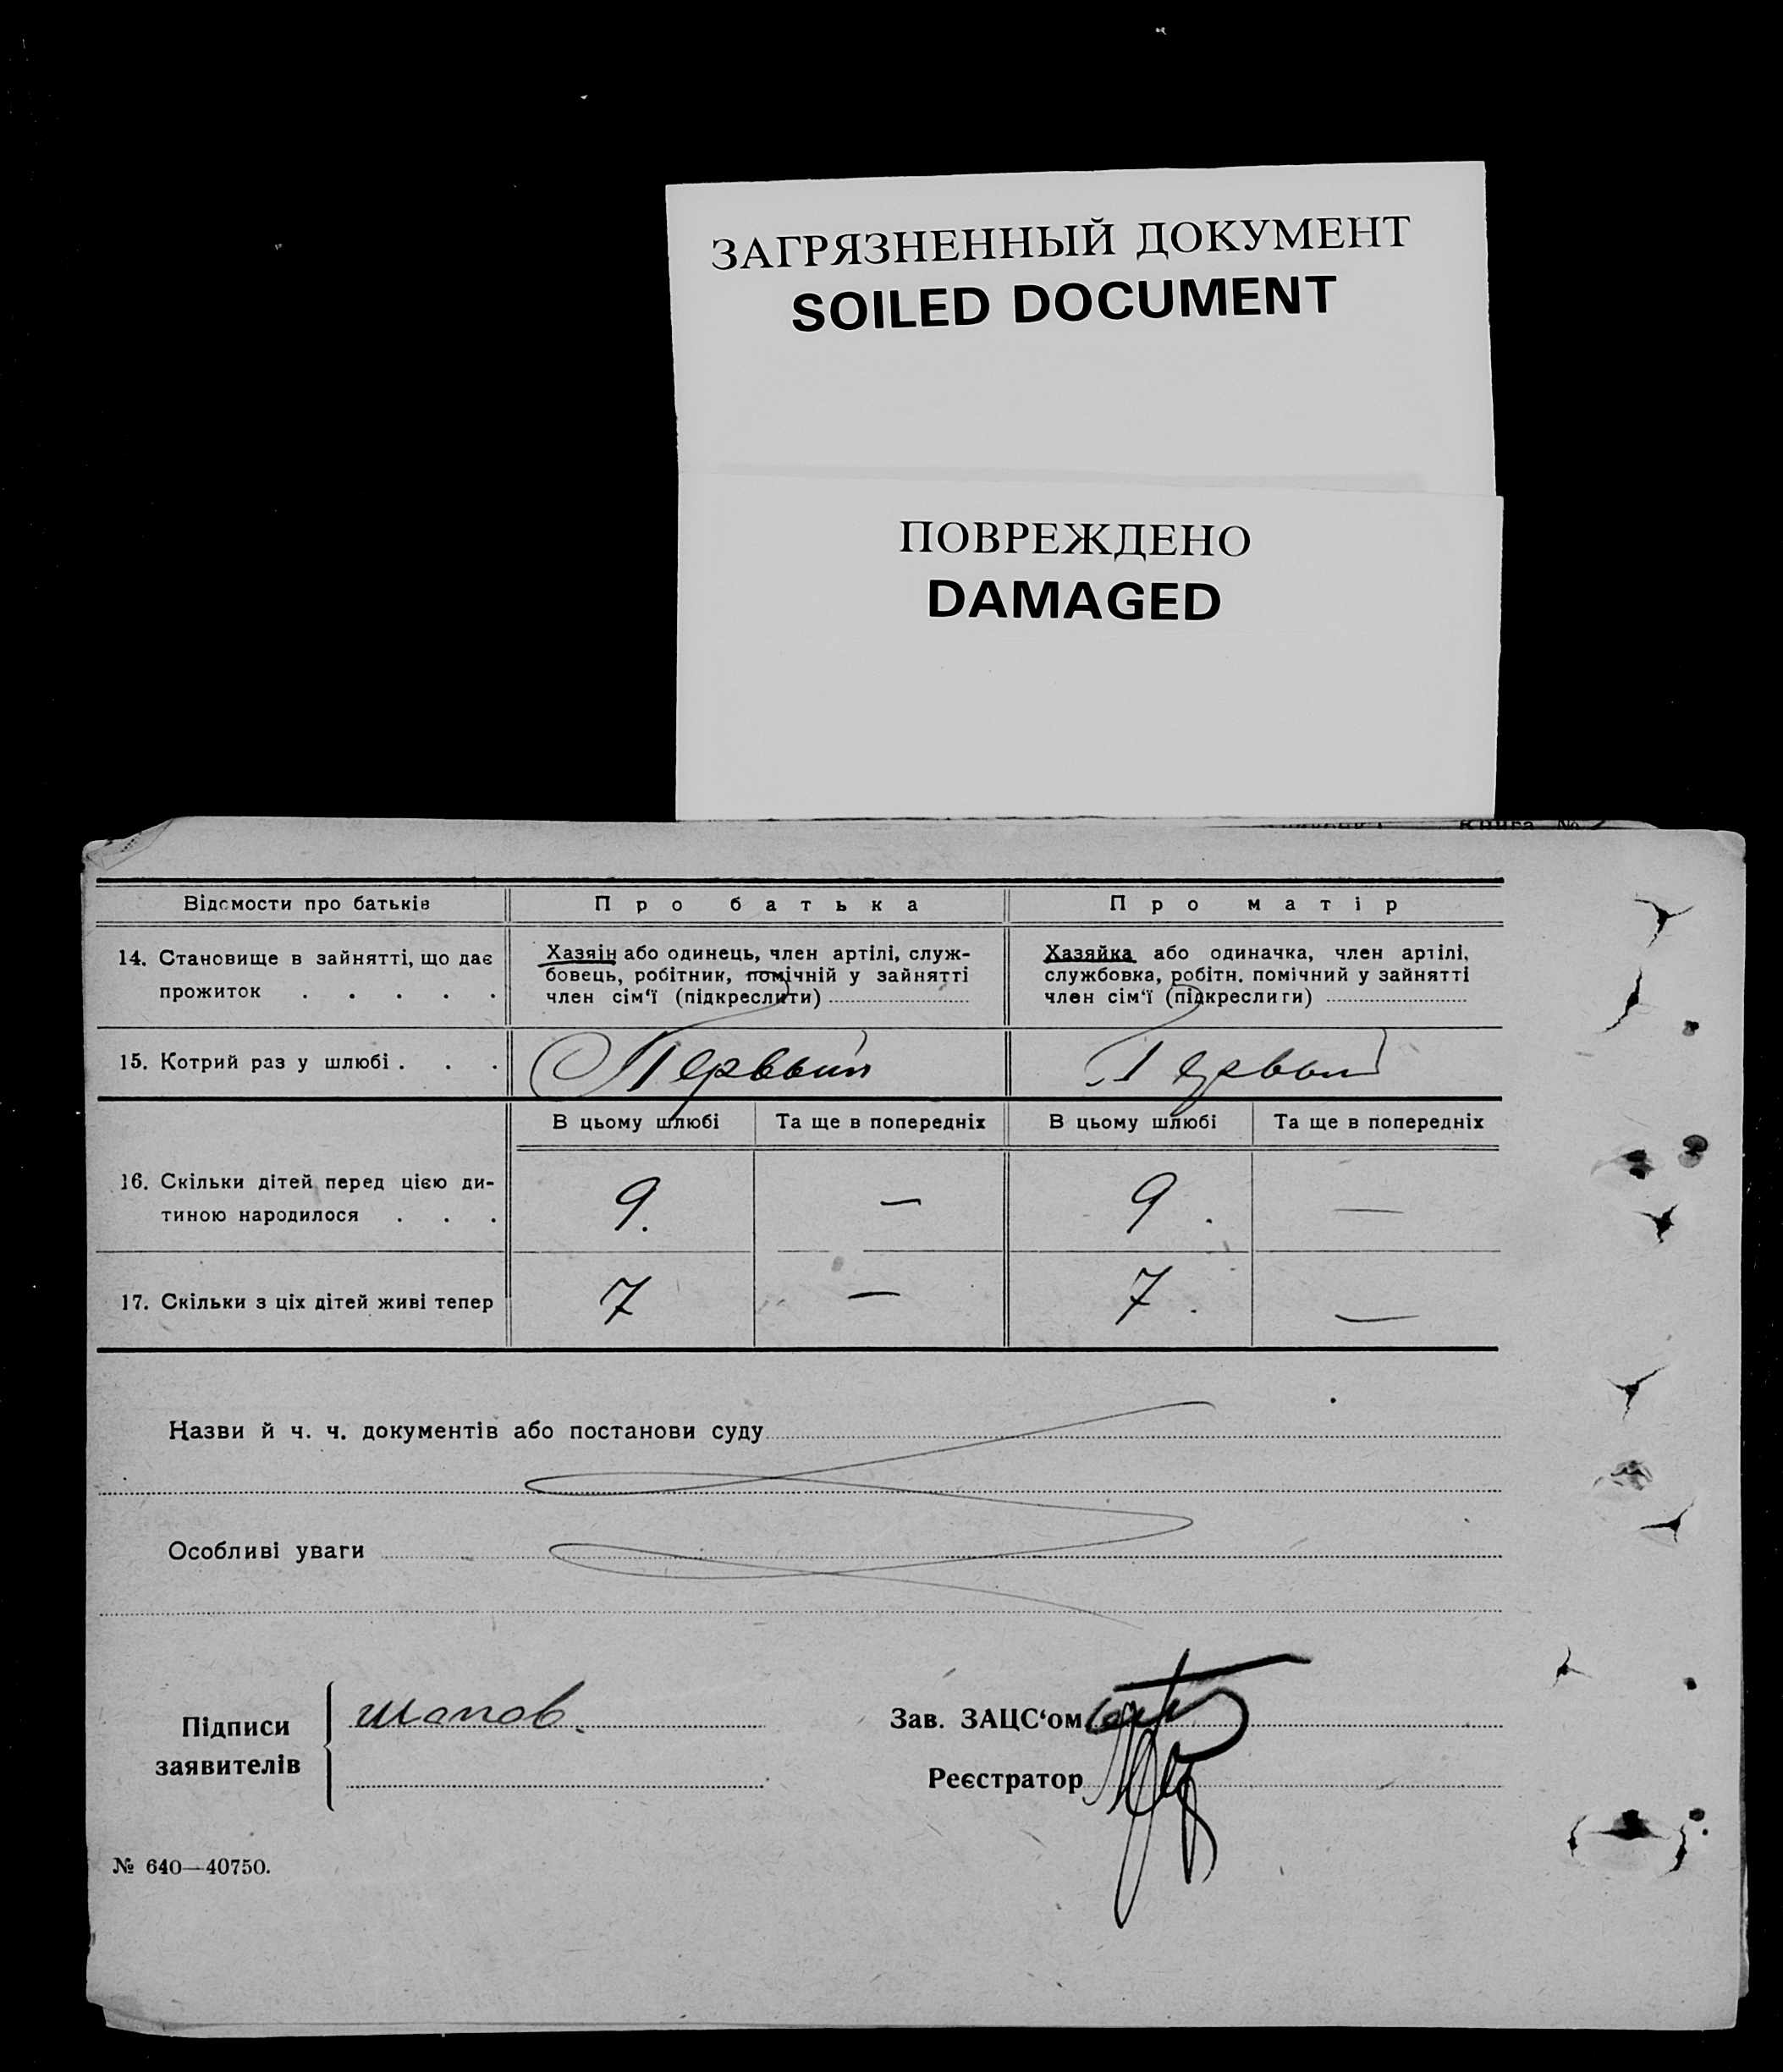 ЗАГРЯЗНЕННЫЙ ДОКУМЕНТ
SOILED DOCUMENT
ПОВРЕЖДЕНО
DAMAGED
Книга №
Відомости про батьків
Про батька
Про матір
14. Становище в зайнятті, що дає
прожиток . . . . .
Хазяїн або одинець, член артілі, служ-
бовець, робітник, помічній у зайнятті
член сім'ї (підкреслити)
Хазяйка або одиначка, член артілі,
службовка, робітн. помічний у зайнятті
член сім'ї (підкреслити)
15. Котрий раз у шлюбі . . .
Первый
Первый
В цьому шлюбі
Та ще в попередніх
В цьому шлюбі
Та ще в попередніх
16. Скільки дітей перед цією ди-
тиною народилося . . .
9.
—
9.
—
17. Скільки з ціх дітей живі тепер
7
—
7.
—
Назви й ч. ч. документів або постанови суду
Особливі уваги
Підписи
заявителів
шапов.
Зав. ЗАЦС‘ом
Реєстратор
№ 640—40750.